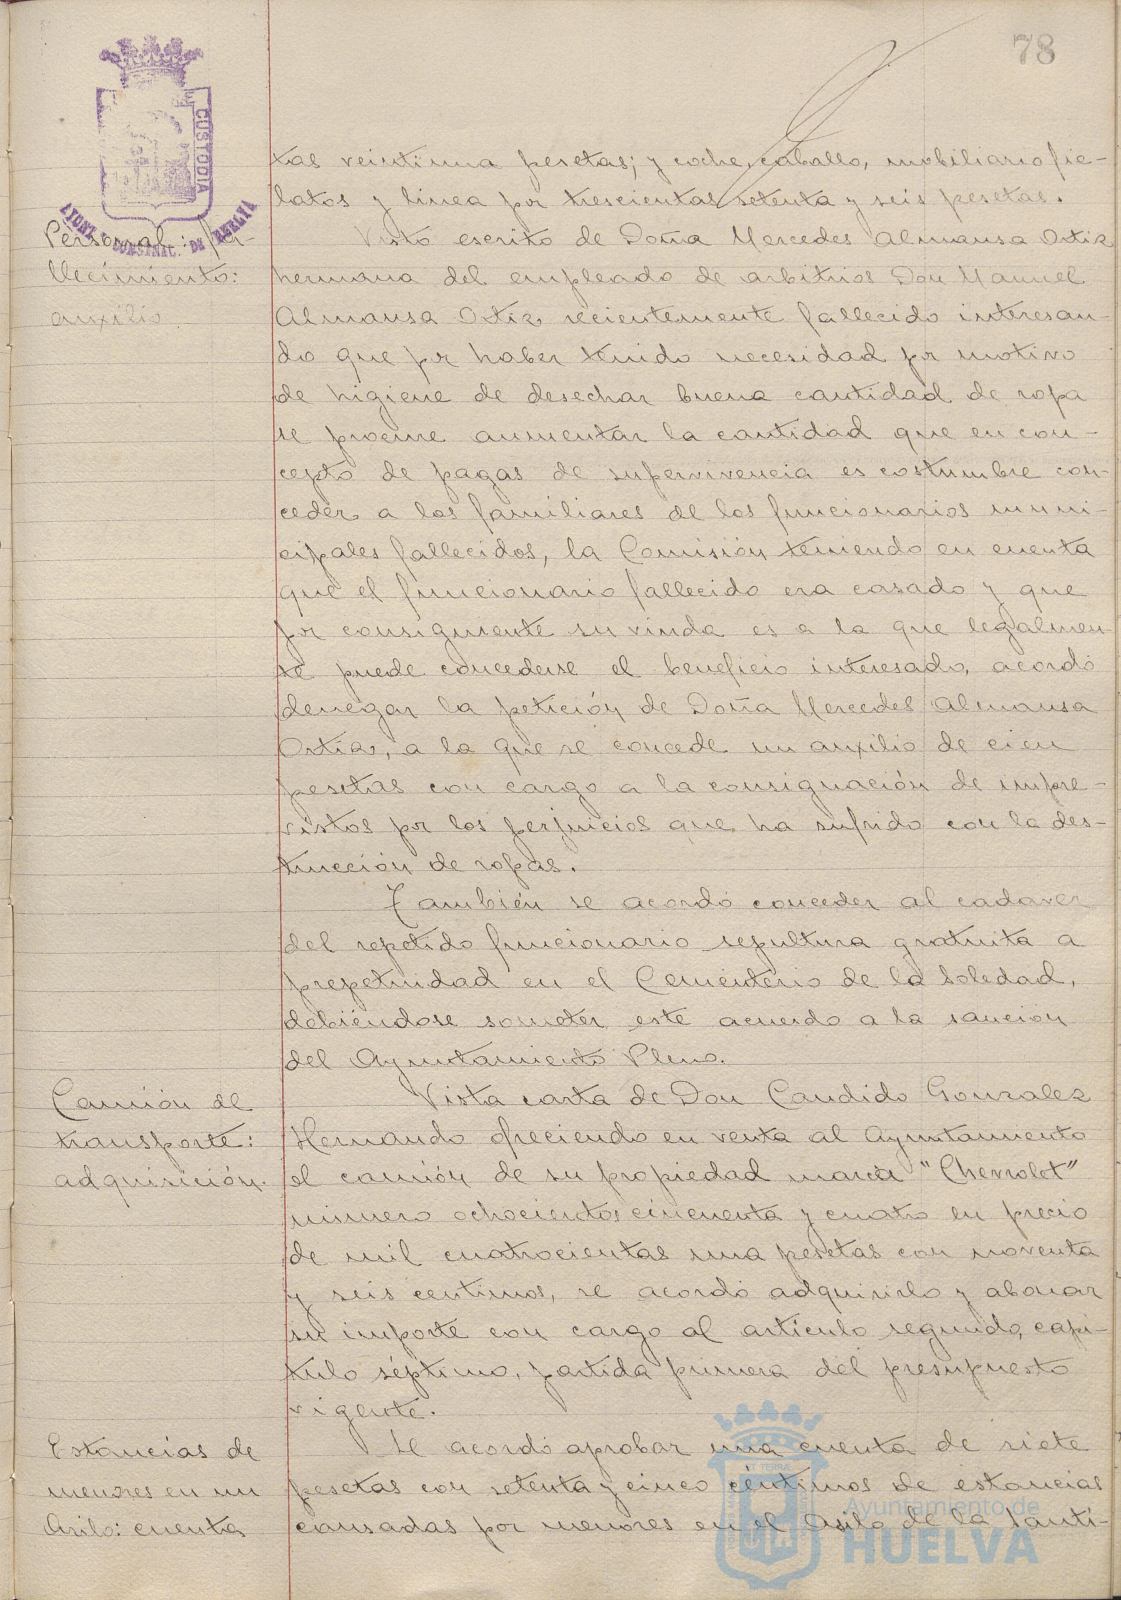 78
CUSTODIA
AYUNT. CONSTNAL. DE HUELVA
tas veintiuna pesetas; y coche, caballo, mobiliario fie-
latos y linea por trescientas setenta y seis pesetas.
Personal: fa-
llecimiento:
auxilio
Visto escrito de Doña Mercedes Almansa Ortiz
hermana del empleado de arbitrios Don Manuel
Almansa Ortiz, recientemente fallecido interesan-
do que por haber tenido necesidad por motivo
de higiene de desechar buena cantidad de ropa
se procure aumentar la cantidad que en con-
cepto de pagas de supervivencia es costumbre con-
ceder a los familiares de los funcionarios muni-
cipales fallecidos, la Comisión teniendo en cuenta
que el funcionario fallecido era casado y que
por consiguiente su viuda es a la que legalmen-
te puede concederse el beneficio interesado, acordó
denegar la petición de Doña Mercedes Almansa
Ortiz, a la que se concede un auxilio de cien
pesetas con cargo a la consignación de impre-
vistos por los perjuicios que ha sufrido con la des-
trucción de ropas.
También se acordó conceder al cadaver
del repetido funcionario sepultura gratuita a
prepetuidad en el Cementerio de la Soledad,
debiéndose someter este acuerdo a la sanción
del Ayuntamiento Pleno.
Camión de
transporte:
adquisición.
Vista carta de Don Candido Gonzalez
Hernando ofreciendo en venta al Ayuntamiento
el camión de su propiedad marca "Chevrolet"
número ochocientos cincuenta y cuatro en precio
de mil cuatrocientas una pesetas con noventa
y seis centimos, se acordó adquirirlo y abonar
su importe con cargo al artículo segundo, capi-
tulo séptimo, partida primera del presupuesto
vigente.
Estancias de
menores en un
Asilo: cuenta
Se acordó aprobar una cuenta de siete
pesetas con setenta y cinco céntimos de estancias
causadas por menores en el Asilo de la Santi-
Ayuntamiento de
HUELVA